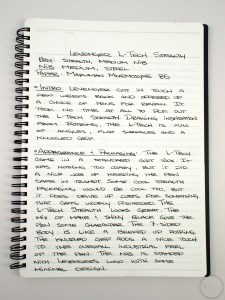 Levenger L-Tech Stealth
Pen: Stealth, Medium Nib
Nib: Medium, Steel
Paper: Maruman Mnemosyne B5
• Intro: Levenger got in touch a
few weeks back and offered up
a choice of pens for review. It
took no time at all to pick out
the L-Tech Stealth. Drawing inspiration
from the L-Tech is full
of angles, flat surfaces and a
knurled grip.
• Appearance & Packaging: The L-Tech
came in a standard gift box. It
was nothing too classy, but it did
a nice job of keeping the pen
safe in transit. Some cool stealth
packaging would be cool too, but
it does serve it cues for something
that gets widely discarded. The
L-Tech Stealth looks great. The
mix of matte & shiny black give the
pen some character. The 7-sided
body is like a beefed up rotring.
The knurled grip adds a nice touch
to this overall industrial feel
of the pen. The nib is stamped
with Levenger's logo with some
minimal design.